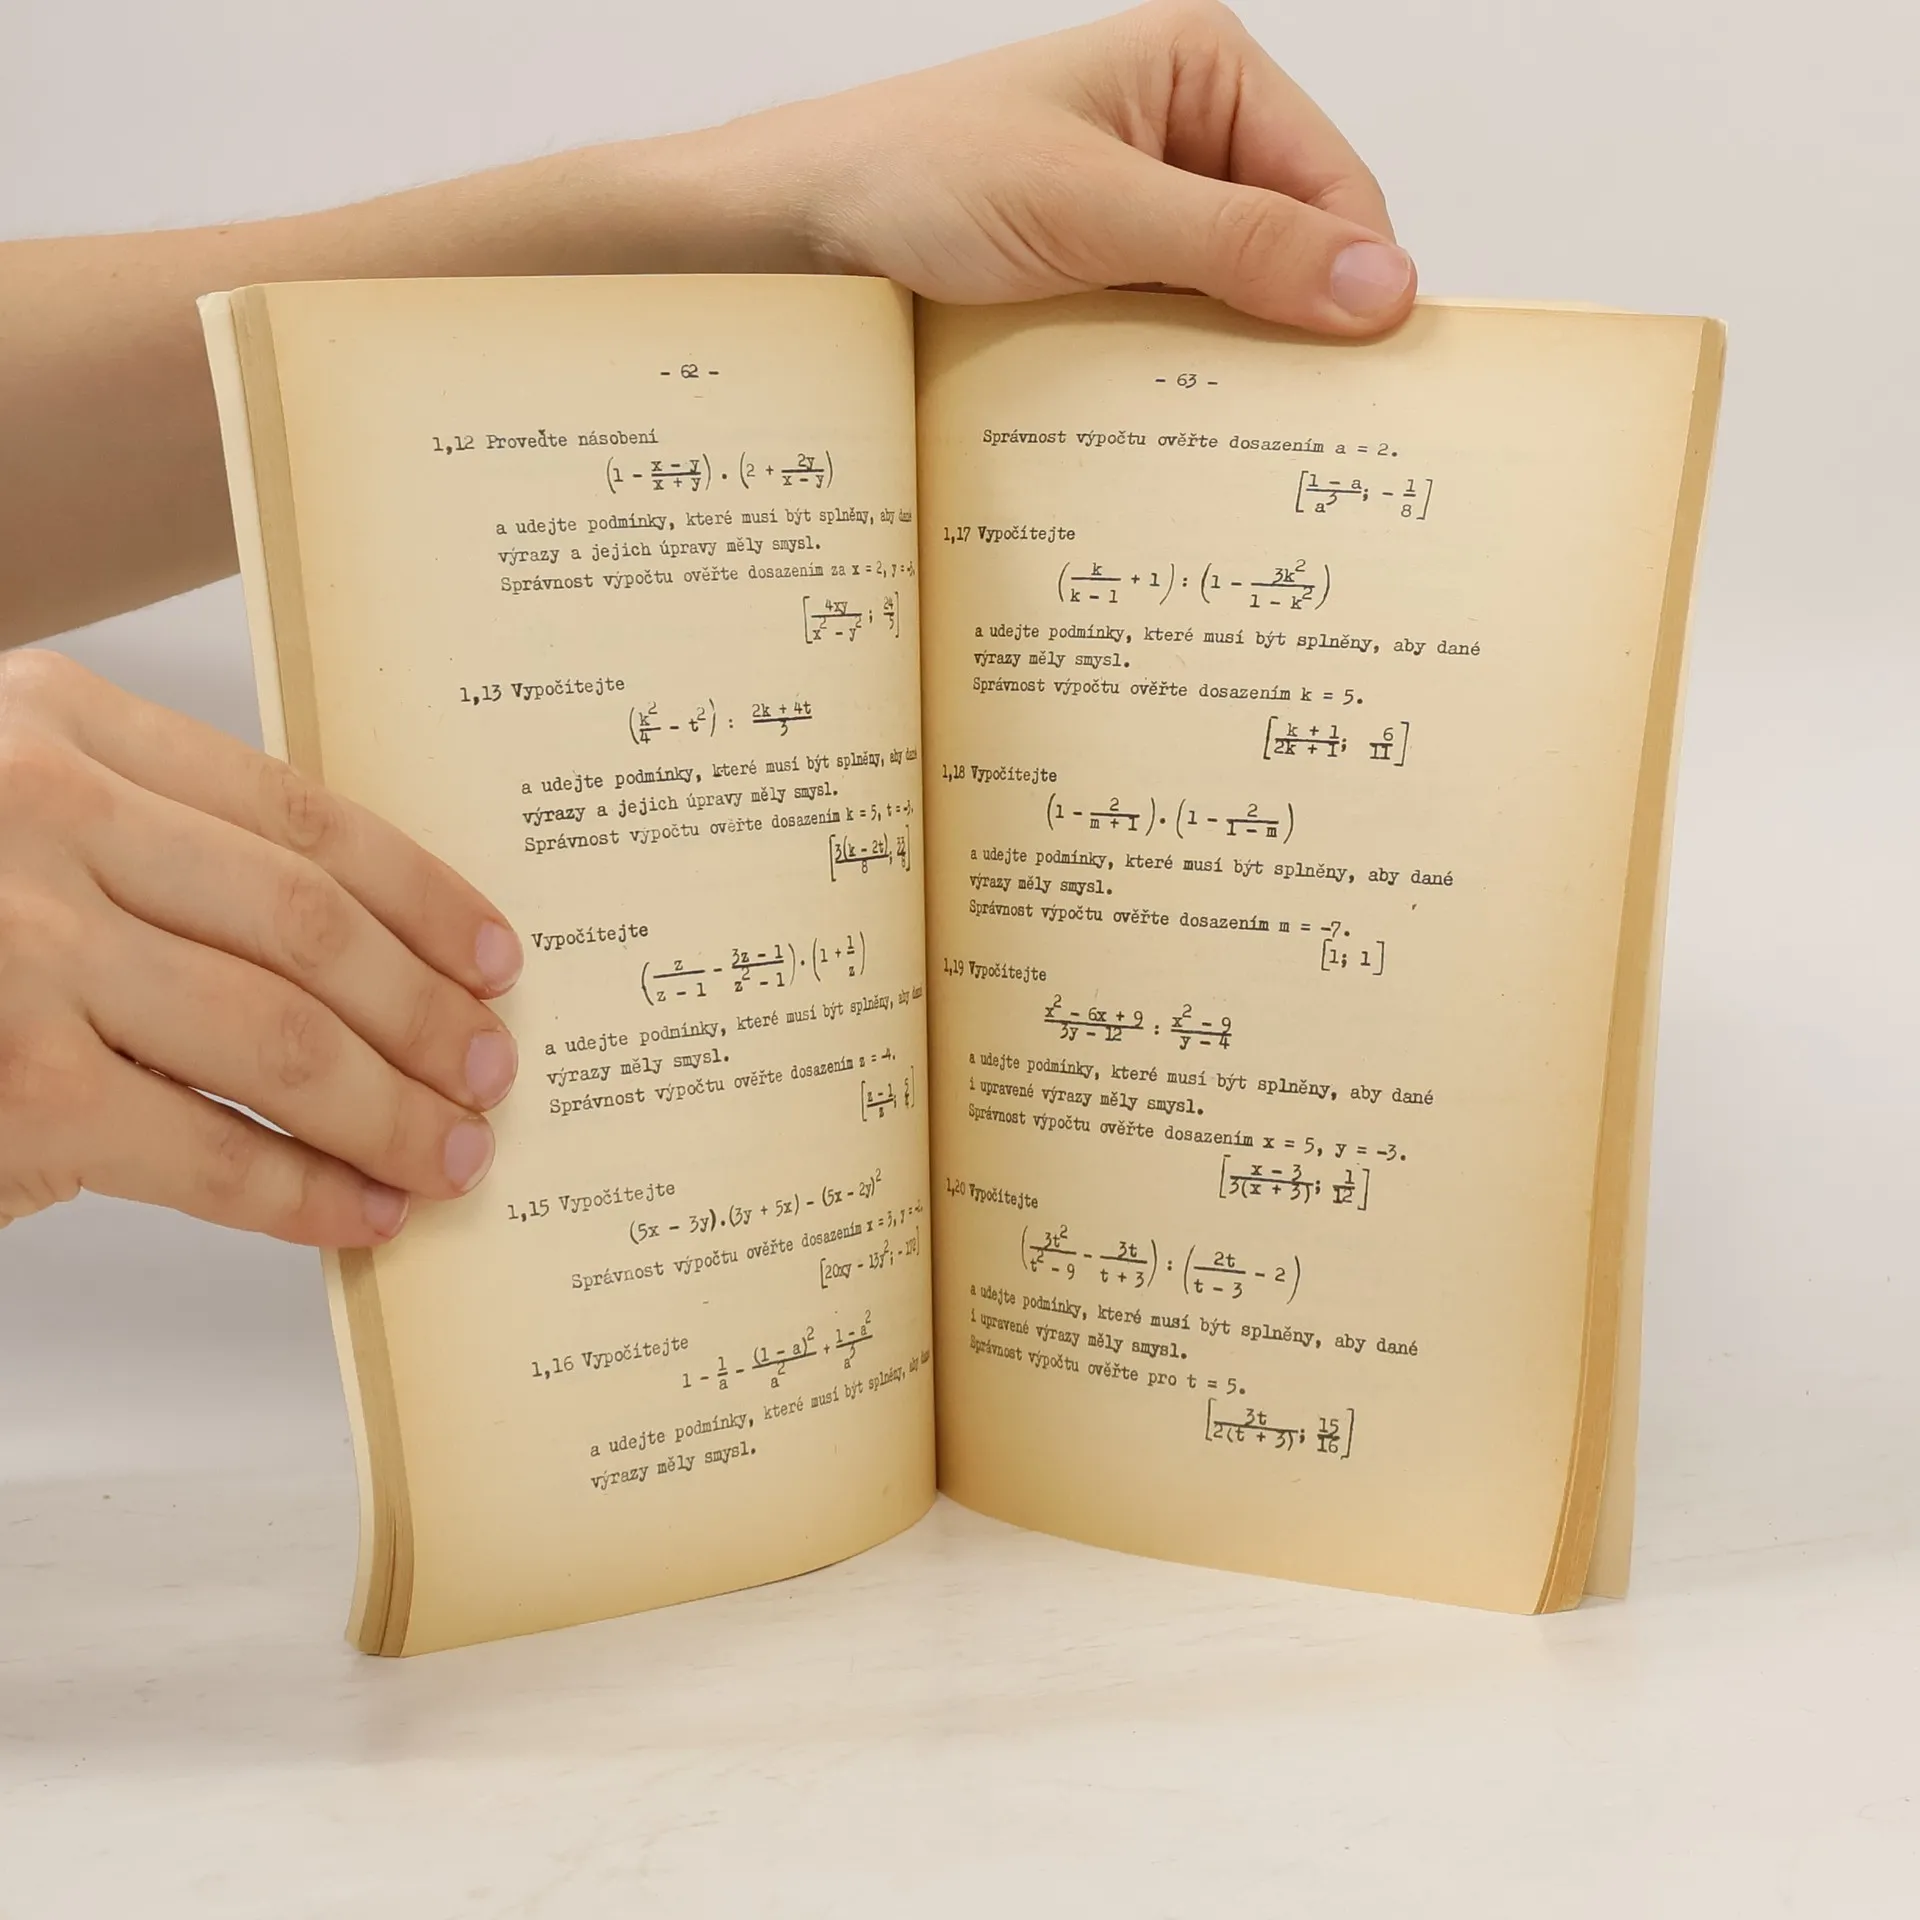 - 62 -
1,12 Proveďte násobení
(1 - (x - y)/(x + y)) . (2 + 2y/(x - y))
a udejte podmínky, které musí být splněny, aby dané
výrazy a jejich úpravy měly smysl.
Správnost výpočtu ověřte dosazením za x = 2, y = -3.
[4xy/(x² - y²); 24/5]
1,13 Vypočítejte
(k²/4 - t²) : (2k + 4t)/3
a udejte podmínky, které musí být splněny, aby dané
výrazy a jejich úpravy měly smysl.
Správnost výpočtu ověřte dosazením k = 5, t = -3.
[3(k - 2t)/8; 33/8]
Vypočítejte
(z/(z - 1) - (3z - 1)/(z² - 1)) . (1 + 1/z)
a udejte podmínky, které musí být splněny, aby dané
výrazy měly smysl.
Správnost výpočtu ověřte dosazením z = -4.
[(z - 1)/z; 5/4]
1,15 Vypočítejte
(5x - 3y).(3y + 5x) - (5x - 2y)²
Správnost výpočtu ověřte dosazením x = 3, y =
[20xy - 13y²;
1,16 Vypočítejte
1 - 1/a - (1 - a)²/a² + (1 - a²)/a³
a udejte podmínky, které musí být splněny, aby dané
výrazy měly smysl.
- 63 -
Správnost výpočtu ověřte dosazením a = 2.
[(1 - a)/a³; - 1/8]
1,17 Vypočítejte
(k/(k - 1) + 1) : (1 - 3k²/(1 - k²))
a udejte podmínky, které musí být splněny, aby dané
výrazy měly smysl.
Správnost výpočtu ověřte dosazením k = 5.
[(k + 1)/(2k + 1); 6/11]
1,18 Vypočítejte
(1 - 2/(m + 1)) . (1 - 2/(1 - m))
a udejte podmínky, které musí být splněny, aby dané
výrazy měly smysl.
Správnost výpočtu ověřte dosazením m = -7.
[1; 1]
1,19 Vypočítejte
(x² - 6x + 9)/(3y - 12) : (x² - 9)/(y - 4)
a udejte podmínky, které musí být splněny, aby dané
i upravené výrazy měly smysl.
Správnost výpočtu ověřte dosazením x = 5, y = -3.
[(x - 3)/(3(x + 3)); 1/12]
1,20 Vypočítejte
(3t²/(t² - 9) - 3t/(t + 3)) : (2t/(t - 3) - 2)
a udejte podmínky, které musí být splněny, aby dané
i upravené výrazy měly smysl.
Správnost výpočtu ověřte pro t = 5.
[3t/(2(t + 3)); 15/16]